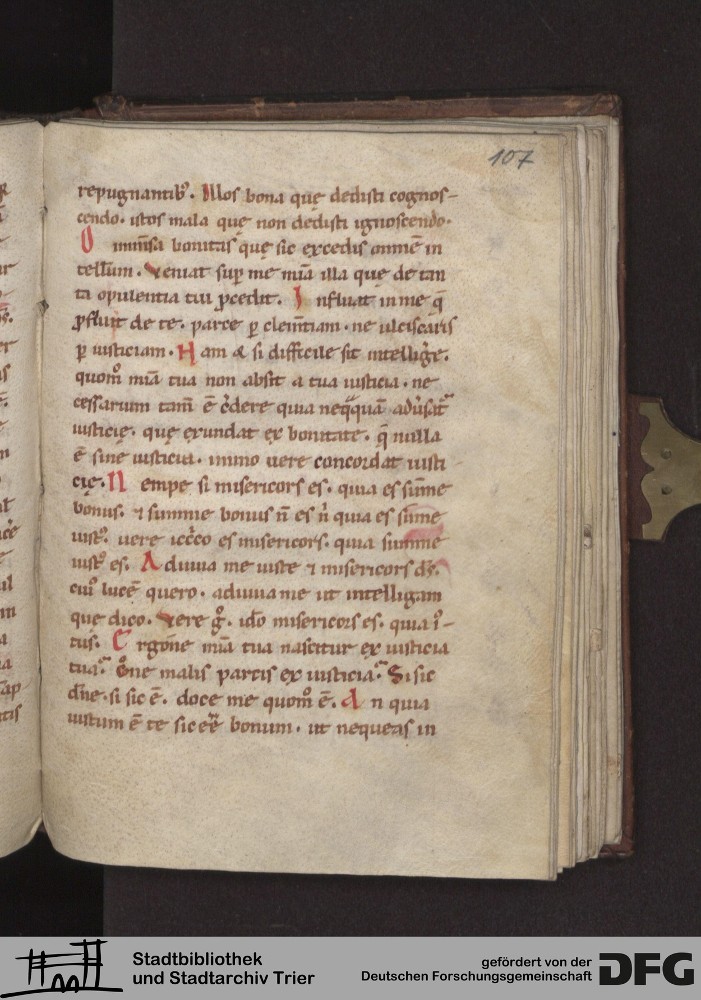 107
repugnantib᷒. Illos bona quę dedisti cognos-
cendo. istos mala quę non dedisti ignoscendo.
O inm̄sa bonitas quę sic excedis omnē in
tellm̄. Veniat sup̱ me mīa illa quę de tan
ta opulentia tui p̱cedit. Influat in me q̄
p̱fluit de te. parce p̱ clem̄tiam. ne ulciscaris
p̱ iusticiam. Nam & si difficile sit intellig̓e.
quom̊ mīa tua non absit a tua iusticia. ne
cessarium tam̄ ē c̓dere quia neq̄quā adu̓sat᷑
iusticię. quę exundat ex bonitate. q̄ nulla
ē sine iusticia. immo uere concordat iusti
cię. Nempe si misericors es. quia es sūme
bonus. ⁊ summe bonus n̄ es n̓ quia es sūme
iust᷒. uere icc̓co es misericors. quia summe
iust᷒ es. Adiuua me iuste ⁊ misericors d̄s.
cui᷒ lucē quero. adiuua me ut intelligam
quę dico. Vere g̊. iđo misericors es. quia i᷒-
tus. Ergone mīa tua nascitur ex iusticia
tua. One malis parcis ex iusticia. Si sic
dn̄e. si sic ē. doce me quom̊ ē. An quia
iustum ē te sic eē bonum. ut nequeas in
Stadtbibliothek
und Stadtarchiv Trier
gefördert von der
Deutschen Forschungsgemeinschaft
DFG